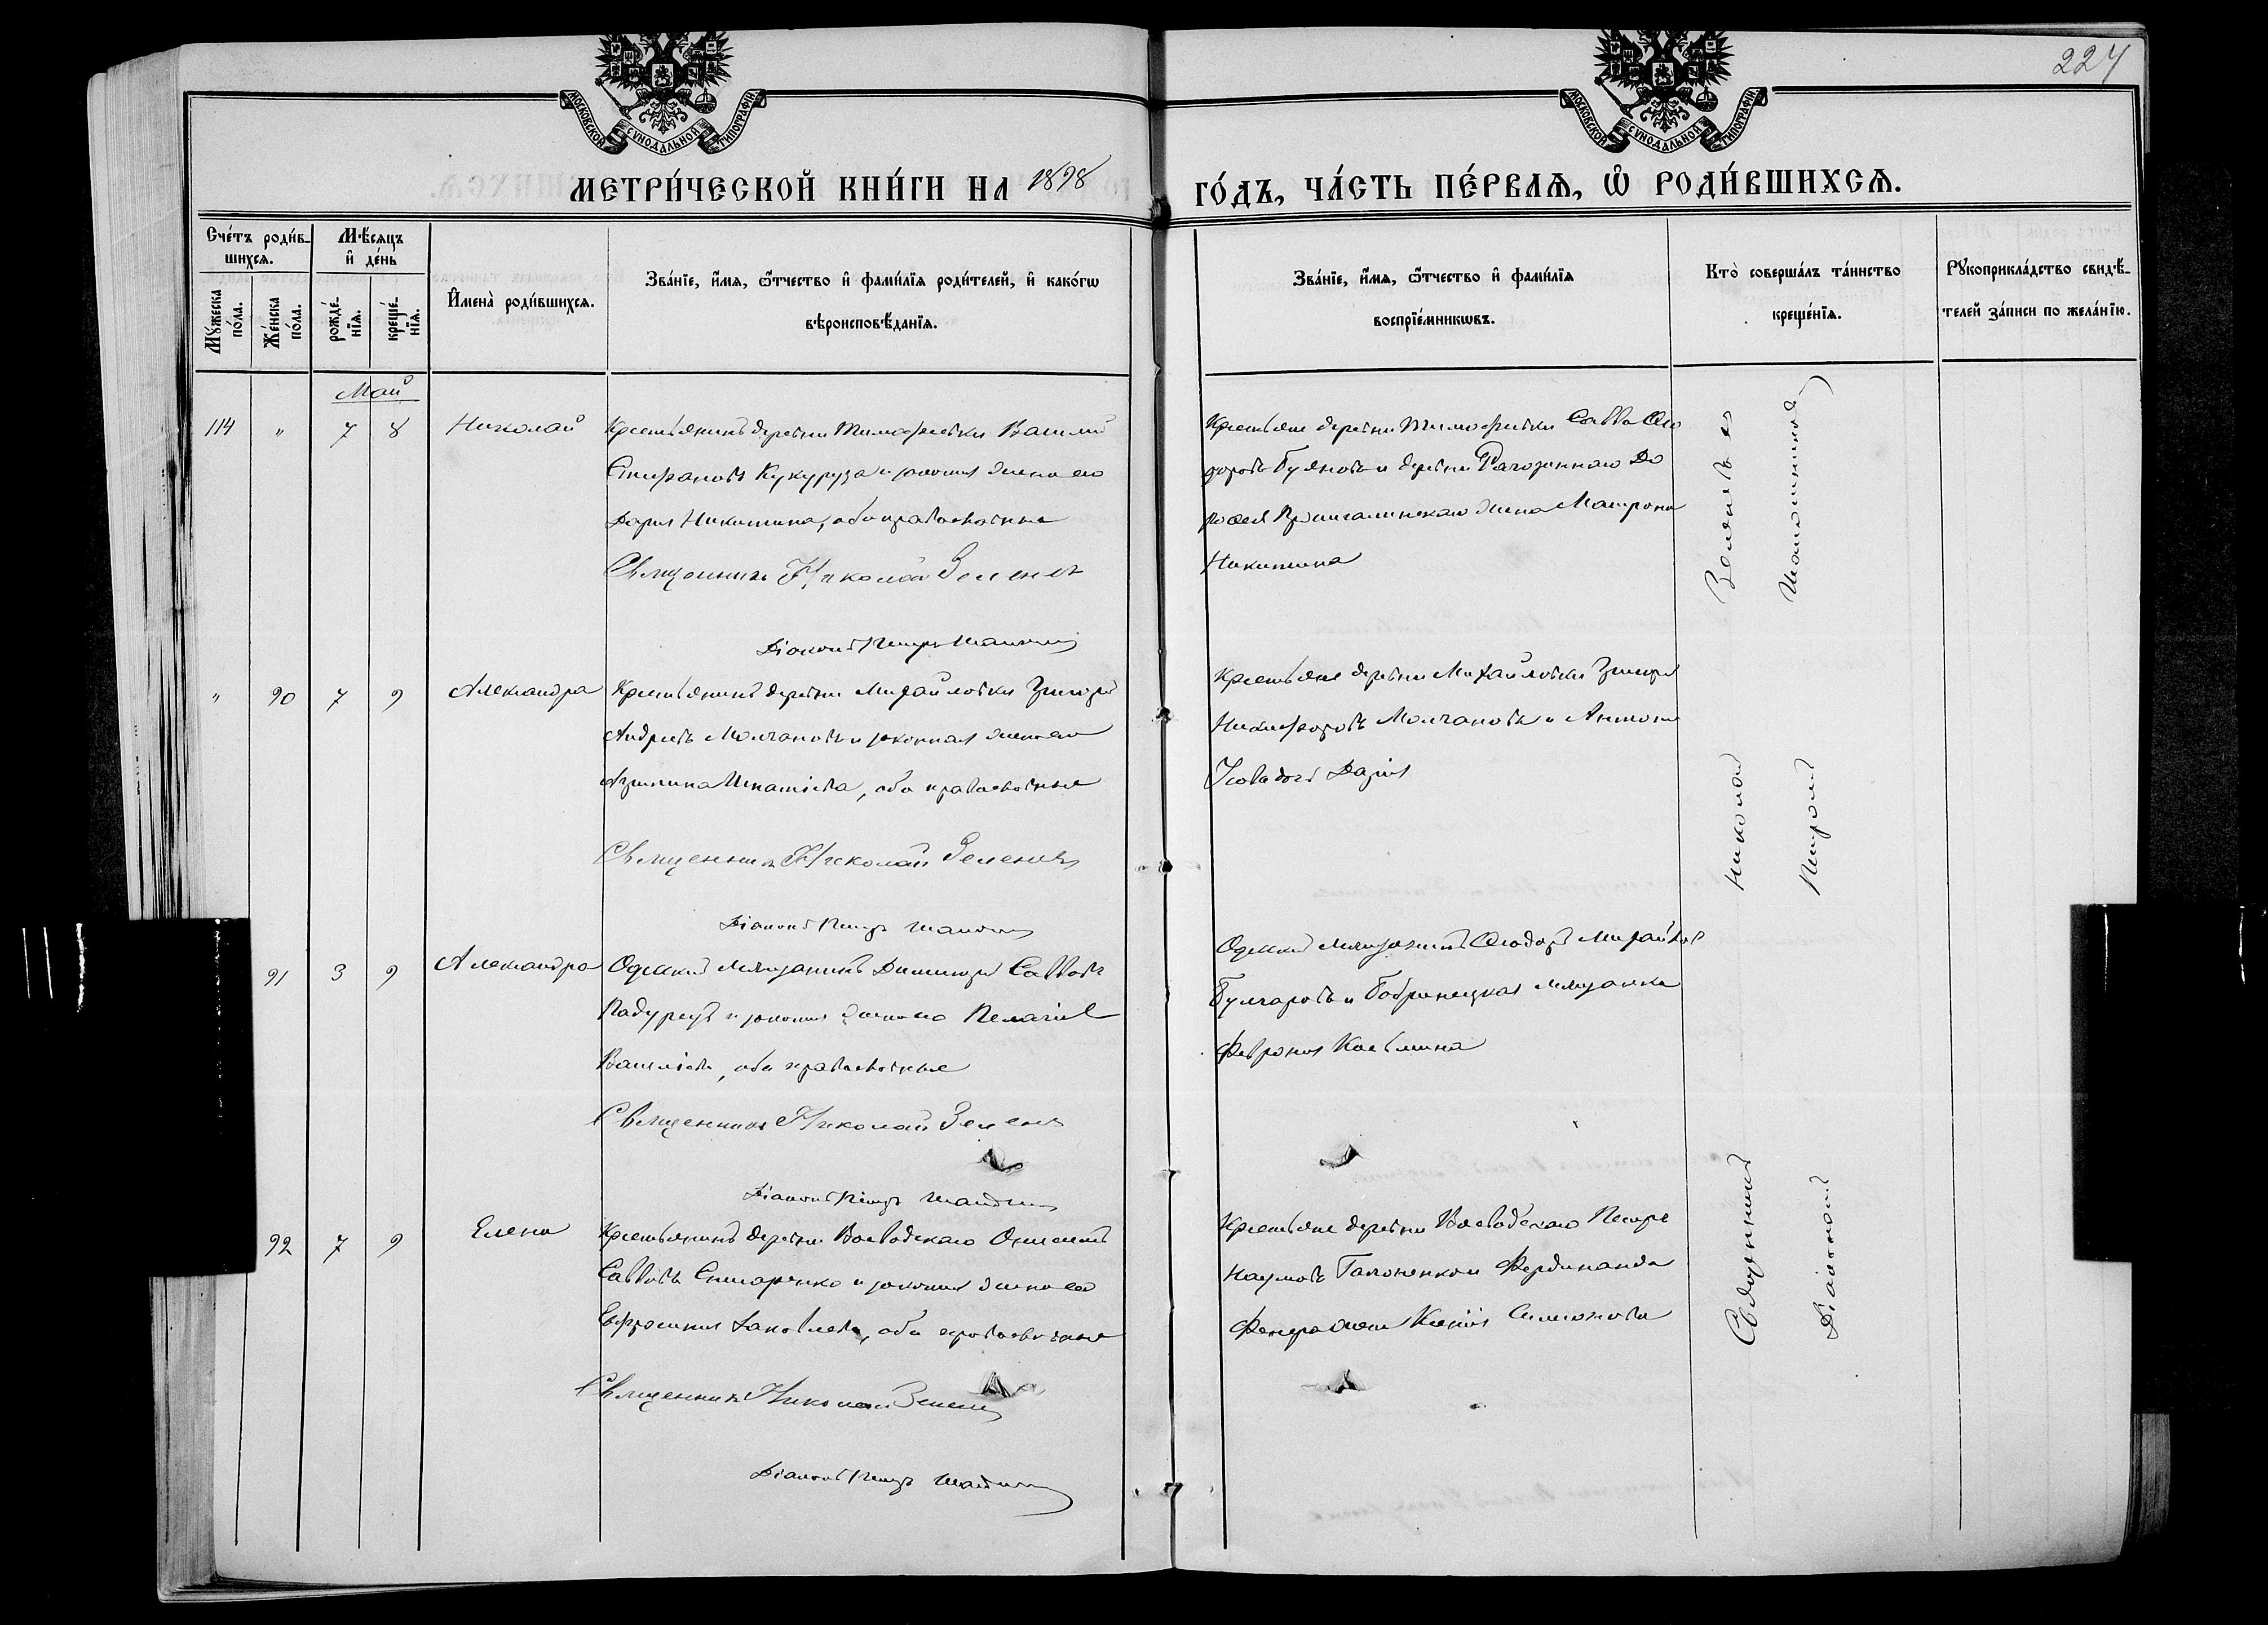 224
МОСКОВСКОЙ СѴНОДАЛЬНОЙ ТИПОГРАФІИ
МОСКОВСКОЙ СѴНОДАЛЬНОЙ ТИПОГРАФІИ
МЕТРИ́ЧЕСКОЙ КНИ́ГИ НА 1898 ГО́ДЪ, ЧА́СТЬ ПЕ́РВАѦ, Ѡ҆ РОДИ́ВШИХСѦ.
Сче́тъ роди́в-
шихсѧ.
Мꙋ́жеска по́ла.
Же́нска по́ла.
Мѣ́сѧцъ и҆ де́нь
рожде́-нїѧ.
креще́-нїѧ.
И҆мена̀ роди́вшихсѧ.
Зва́нїе, и҆́мѧ, ѻ҆́тчество и҆ фами́лїѧ роди́телей, и҆ како́гѡ
вѣроисповѣ́данїѧ.
Зва́нїе, и҆́мѧ, ѻ҆́тчество и҆ фами́лїѧ
воспрїе́мникѡвъ.
Кто̀ соверша́лъ та́инство
креще́нїѧ.
Рꙋкоприкла́дство свидѣ́-
телей за́писи по жела́нїю.
Май
114 " 7 8 Николай
Крестьянинъ деревни Тимофеевки Василий
Стефановъ Кукуруза и законная жена его
Дарья Никитина, оба православные
Священникъ Николай Зеленевъ
Діаконъ Петръ
Крестьяне деревни Тимофеевки Савва Фео
доровъ Буяновъ и деревни
жена Матрона
Никитина
" 90 7 9 Александра
Крестьянинъ деревни Михайловки Григорій
Андреевъ Молчановъ и законная жена его
Акулина Игнатіева, оба православные
Священникъ Николай Зеленевъ
Діаконъ Петръ
Крестьяне деревни Михайловки Григорій
Никифоровъ Молчановъ и
Дарія
91 3 9 Александра
Одесскій мещанинъ Димитрій Саввовъ
Падурецъ и законная жена его Пелагія
Василіева, оба православные
Священникъ Николай Зеленевъ
Діаконъ Петръ
Одесскій мещанинъ Феодоръ Михайловъ
Булгаровъ и Бобринецкая мещанка
Феврония Косьмина
92 7 9 Елена
Крестьянинъ деревни Воеводскаго
Саввовъ и законная жена его
Евфросинія Яковлева, оба православные
Священникъ Николай Зеленевъ
Діаконъ Петръ
Крестьяне деревни Воеводскаго Петръ
Наумовъ и Фердинанда
Ксенія Симонова
Священникъ Николай Зеленевъ
Діаконъ Петръ